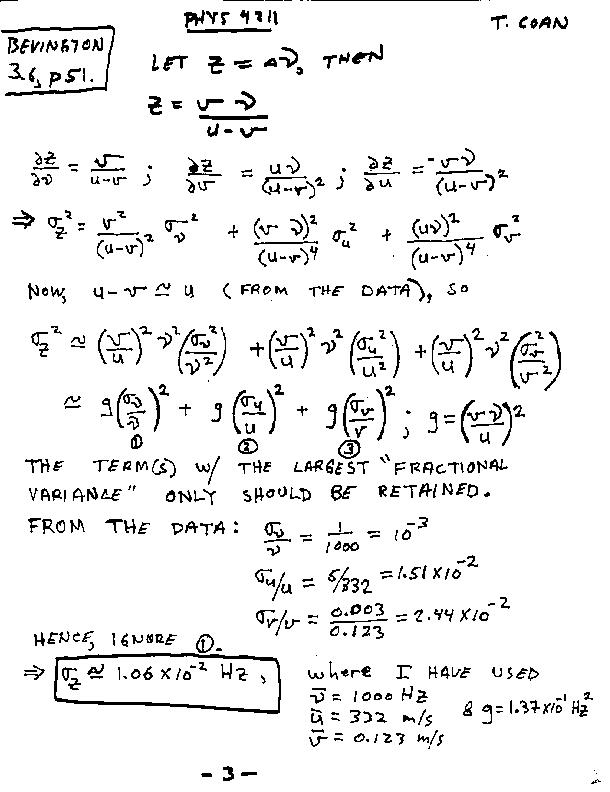 PHYS 4211
T. COAN
BEVINGTON
3.6, p 51.
LET Z = Δν, THEN
Z = v ν / (u - v)
∂Z/∂ν = v/(u-v) ; ∂Z/∂v = uν/(u-v)² ; ∂Z/∂u = -vν/(u-v)²
⇒ σ_Z² = v²/(u-v)² σ_ν² + (v ν)²/(u-v)⁴ σ_u² + (uν)²/(u-v)⁴ σ_v²
NOW, u-v ≃ u (FROM THE DATA), SO
σ_Z² ≃ (v/u)² ν² (σ_ν²/ν²) + (v/u)² ν² (σ_u²/u²) + (v/u)² ν² (σ_v²/v²)
≃ g(σ_ν/ν)² + g(σ_u/u)² + g(σ_v/v)² ; g = (vν/u)²
① ② ③
THE TERM(S) W/ THE LARGEST "FRACTIONAL
VARIANCE" ONLY SHOULD BE RETAINED.
FROM THE DATA: σ_ν/ν = 1/1000 = 10⁻³
σ_u/u = 5/332 = 1.51 X 10⁻²
σ_v/v = 0.003/0.123 = 2.44 X 10⁻²
HENCE, IGNORE ①.
⇒ σ_Z ≃ 1.06 X 10⁻² HZ,
where I HAVE USED
ν̄ = 1000 HZ
ū = 332 m/s & g = 1.37 X 10⁻¹ HZ²
v̄ = 0.123 m/s
- 3 -